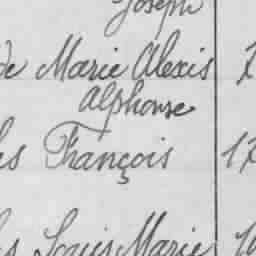 Joseph
de Marie Alexis 7
Alphonse
es François 17
Louis Marie